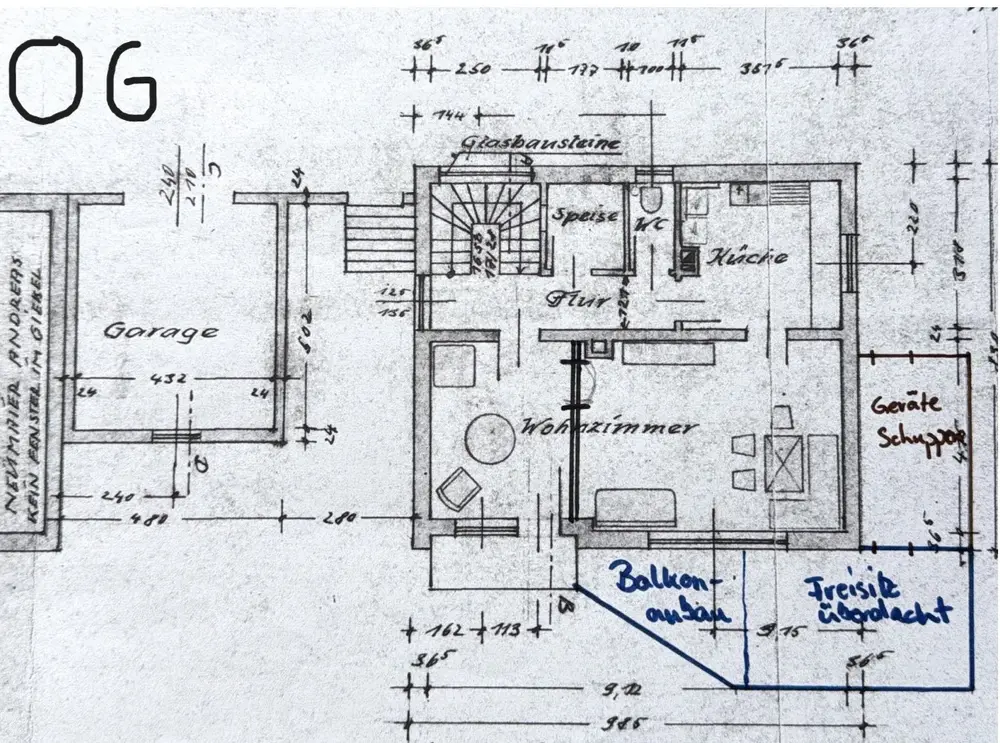 OG
36⁵
250
11⁵
177
10
100
11⁵
351⁵
36⁵
144
Glasbausteine
240
210
24
Speise
WC
Küche
220
310
16 St
17/28
Flur
121
125
135
Garage
502
24
432
24
24
24
NEUMAIER ANDREAS
KEIN FENSTER IM GIEBEL
Wohnzimmer
Geräte
Schuppen
240
480
280
36⁵
Balkon-
anbau
Freisitz
überdacht
162
113
B
9,15
36⁵
36⁵
9,12
985